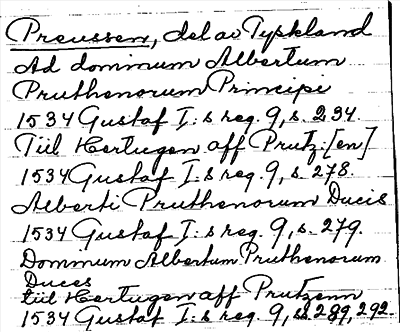 Preussen, del av Tyskland
Ad dominum Albertum
Pruthenorum Principi
1534 Gustaf I:s reg. 9, s. 234.
Till Hertugen aff Prutz:[en]
1534 Gustaf I:s reg. 9, s. 278.
Alberti Pruthenorum Ducis
1534 Gustaf I:s reg. 9, s. 279.
Dominum Albertum Pruthenorum
Duces
till Hertugen aff Prutzenn
1534 Gustaf I:s reg. 9, s. 289, 292.